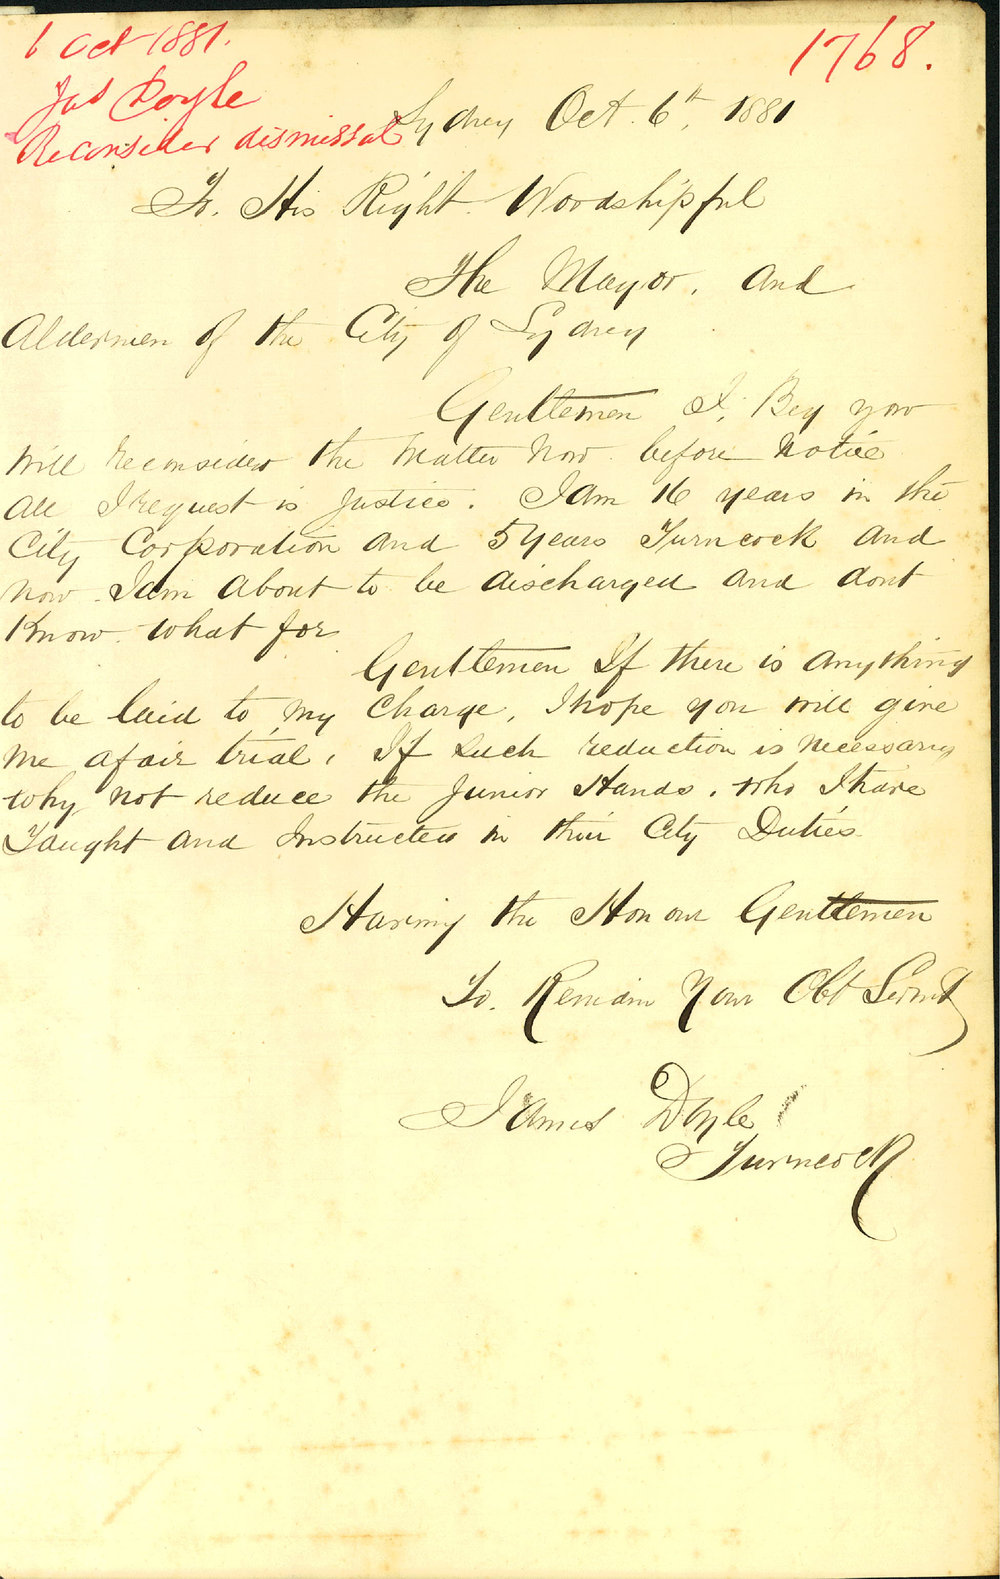 6 Oct 1881.
1768.
Jas Doyle
Reconsider dismissal
Sydney Oct. 6th, 1881
To. His Right Woodshipful
The Mayor. and
Aldermen of the City of Sydney
Gentlemen I, Beg you
will reconsider the matter now before notice
all I request is Justice. I am 16 years in the
City Corporation and 5 years Turncock and
now I am about to be discharged and dont
Know what for
Gentlemen If there is anything
to be laid to my charge, I hope you will give
me a fair trial, If such reduction is necessary
why not reduce the Junior Hands. who I have
Taught and Instructed in their City Duties
Having the Honour Gentlemen
To. Remain Your Obt Servnt
James Doyle
Turncock